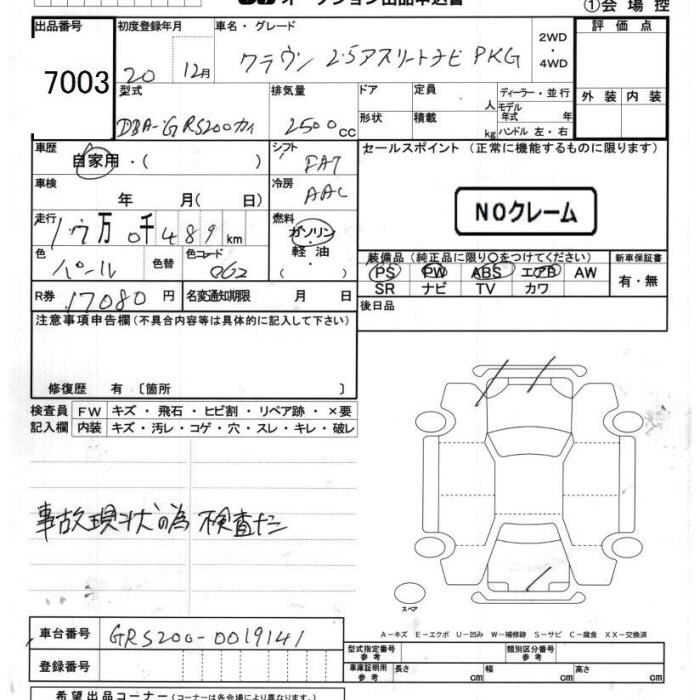 オークション出品申込書
①会場控
出品番号
7003
初度登録年月
20 12月
車名・グレード
クラウン 2.5アスリートナビPKG
2WD
・
4WD
評価点
外装 内装
型式
DBA-GRS200カイ
排気量
2500cc
ドア
定員
人
ディーラー・並行
モデル年式 年
形状
積載
kg
ハンドル 左・右
車歴
自家用・( )
シフト
FAT
セールスポイント (正常に機能するものに限ります)
車検
年 月( 日)
冷房
AAC
NOクレーム
走行
万 千 489 km
燃料
ガソリン
・
軽油
・
( )
色
パール
色替
色コード
062
装備品 (純正品に限り○をつけてください)
PS PW ABS エアB AW
SR ナビ TV カワ
新車保証書
有・無
R券
17080円
名変通知期限 月 日
後日品
注意事項申告欄 (不具合内容等は具体的に記入して下さい)
修復歴 有 [箇所 ]
検査員
記入欄
FW キズ・飛石・ヒビ割・リペア跡・×要
内装 キズ・汚レ・コゲ・穴・スレ・キレ・破レ
事故現状の為 検査ナシ
スペア
A－キズ E－エクボ U－凹み W－補修跡 S－サビ C－腐食 XX－交換済
車台番号
GRS200-0019141
登録番号
型式指定番号
参考
類別区分番号
参考
車庫証明用
参考
長さ cm
幅 cm
高さ cm
希望出品コーナー (コーナーは各会場により異なります。)